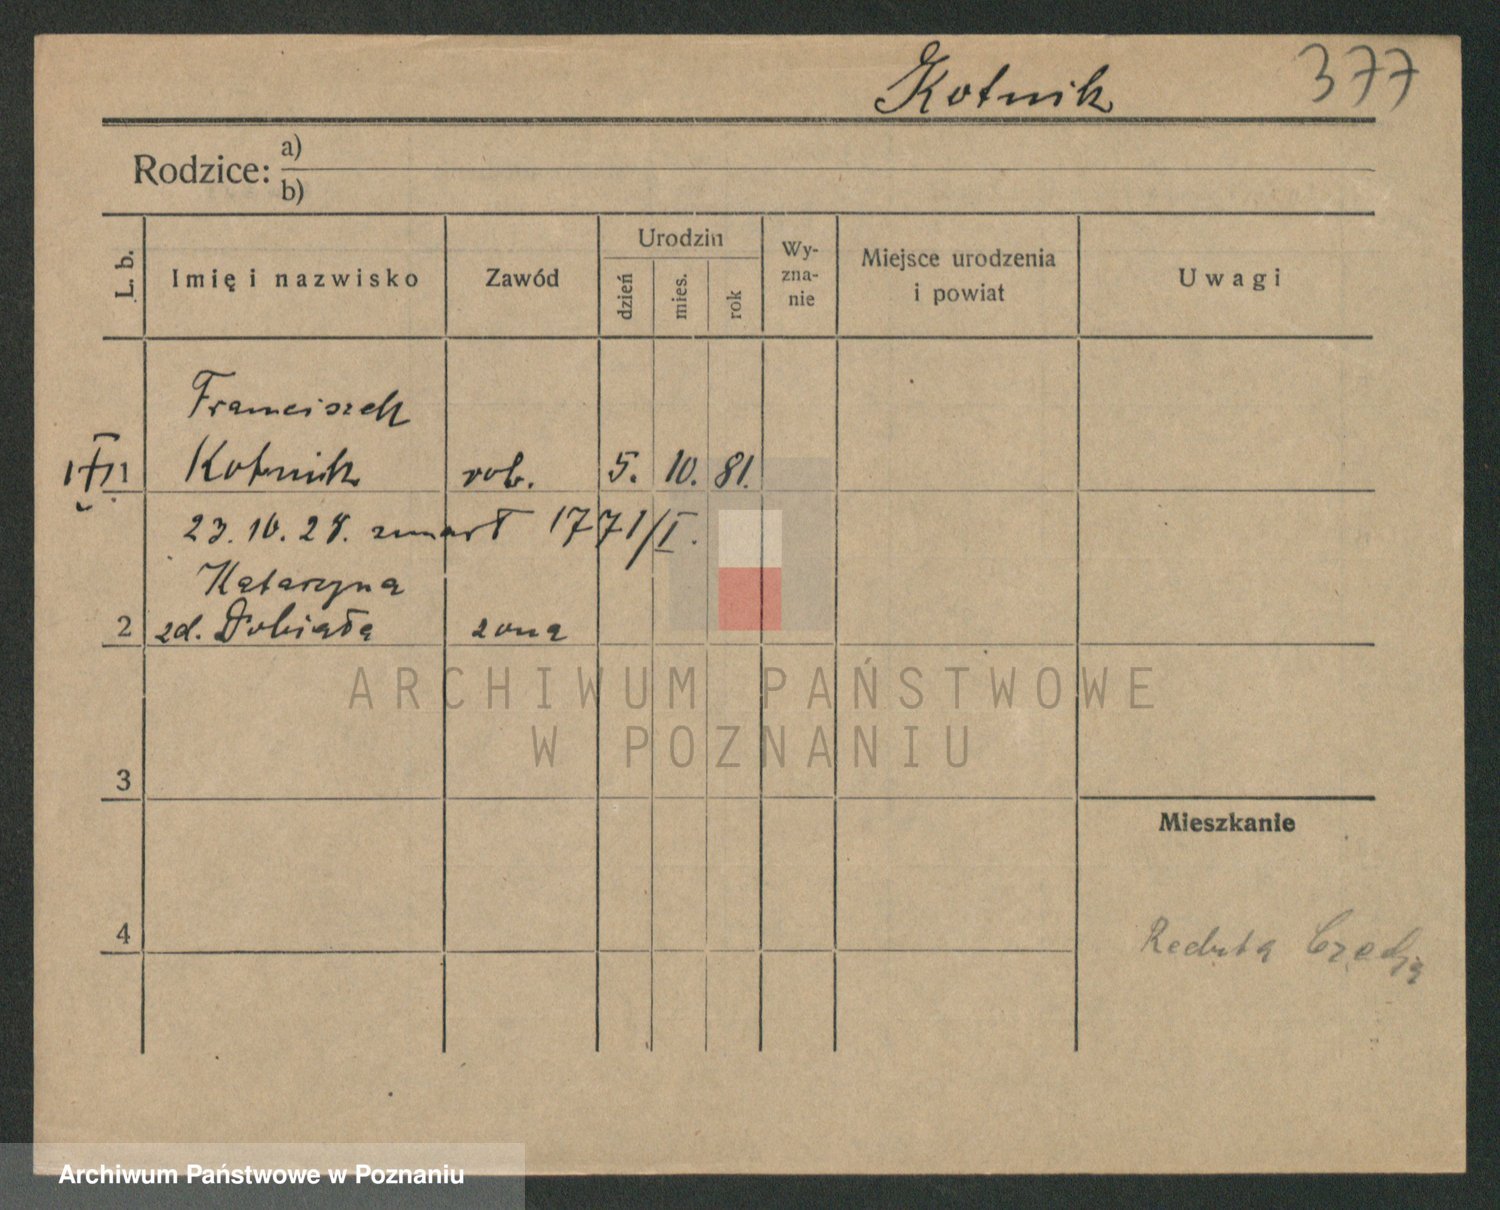 Kotnik 377
Rodzice: a)
b)
L. b. Imię i nazwisko Zawód Urodzin dzień mies. rok Wy-zna-nie Miejsce urodzenia i powiat Uwagi
Franciszek
1 Kotnik rob. 5. 10. 81.
23.10.28. zmarł 1771/I.
Katarzyna
2 zd. Dobiała żona
ARCHIWUM PAŃSTWOWE
W POZNANIU
3
Mieszkanie
4
Reduta
Archiwum Państwowe w Poznaniu